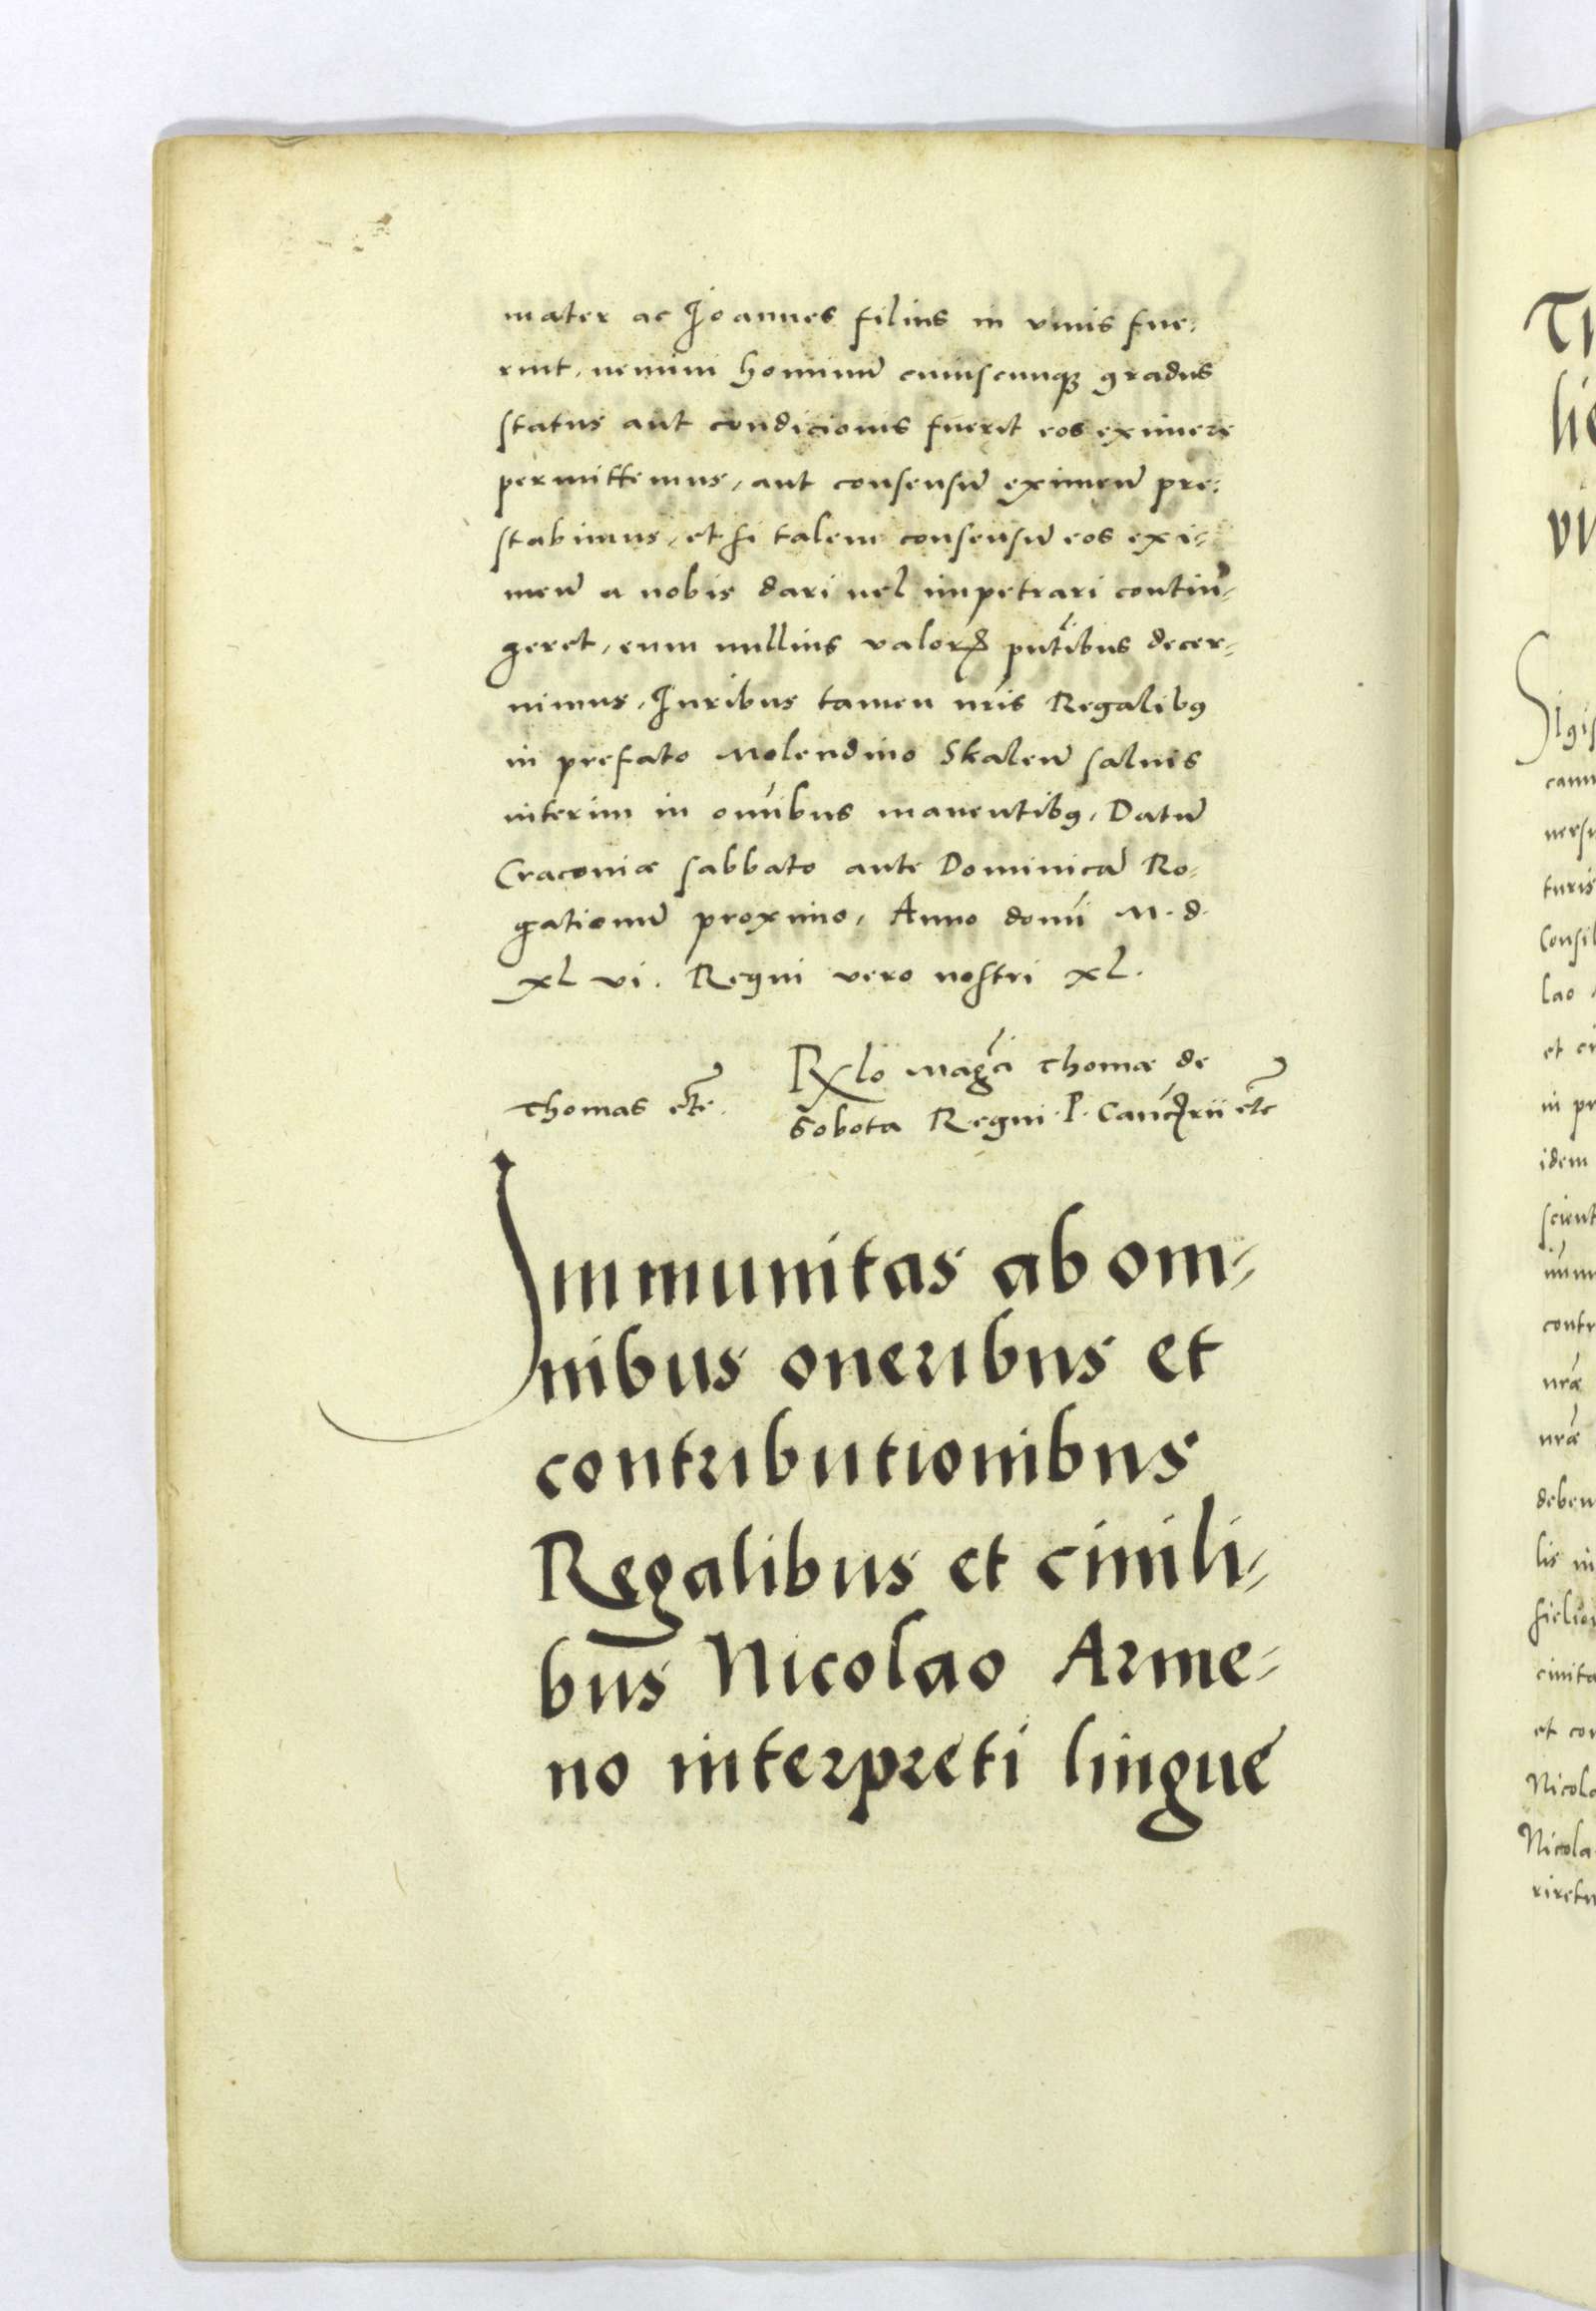 mater ac Joannes filius in viuis fue,
rint, nemini hominū cuiuscunqꝫ gradus
status aut condicionis fuerit eos eximere
permittemus, aut consensū eximen̄ pre,
stabimus, et si talem consensū eos exi,
men̄ a nobis dari uel impetrari contin̄,
geret, eum nullius valorꝭ pn̄tibus decer,
nimus, Juribus tamen nr̄is Regalibꝰ
in prefato Molendino Skalen̄ saluis
interim in om̄ibus manentibꝰ, Datū
Cracouiæ sabbato ante Dominicā Ro,
gationū proximo, Anno domī M. d.
xl vi. Regni vero nostri xl.
Thomas etc̄.
Rҳlo Magc̄i Thomæ de
Sobota Regni P. Canc̄rii etc̄
Immunitas ab om,
nibus oneribus et
contributionibus
Regalibus et ciuili,
bus Nicolao Arme,
no interpreti lingue
Tu
lic
vi
Sigis
camu
uersi
turis
Consil
lao
et ci
in pr
idem
scient
contr
nr̄æ
nr̄æ
deben
lis in
ciuita
et con
Nicola
Nicola
riretu